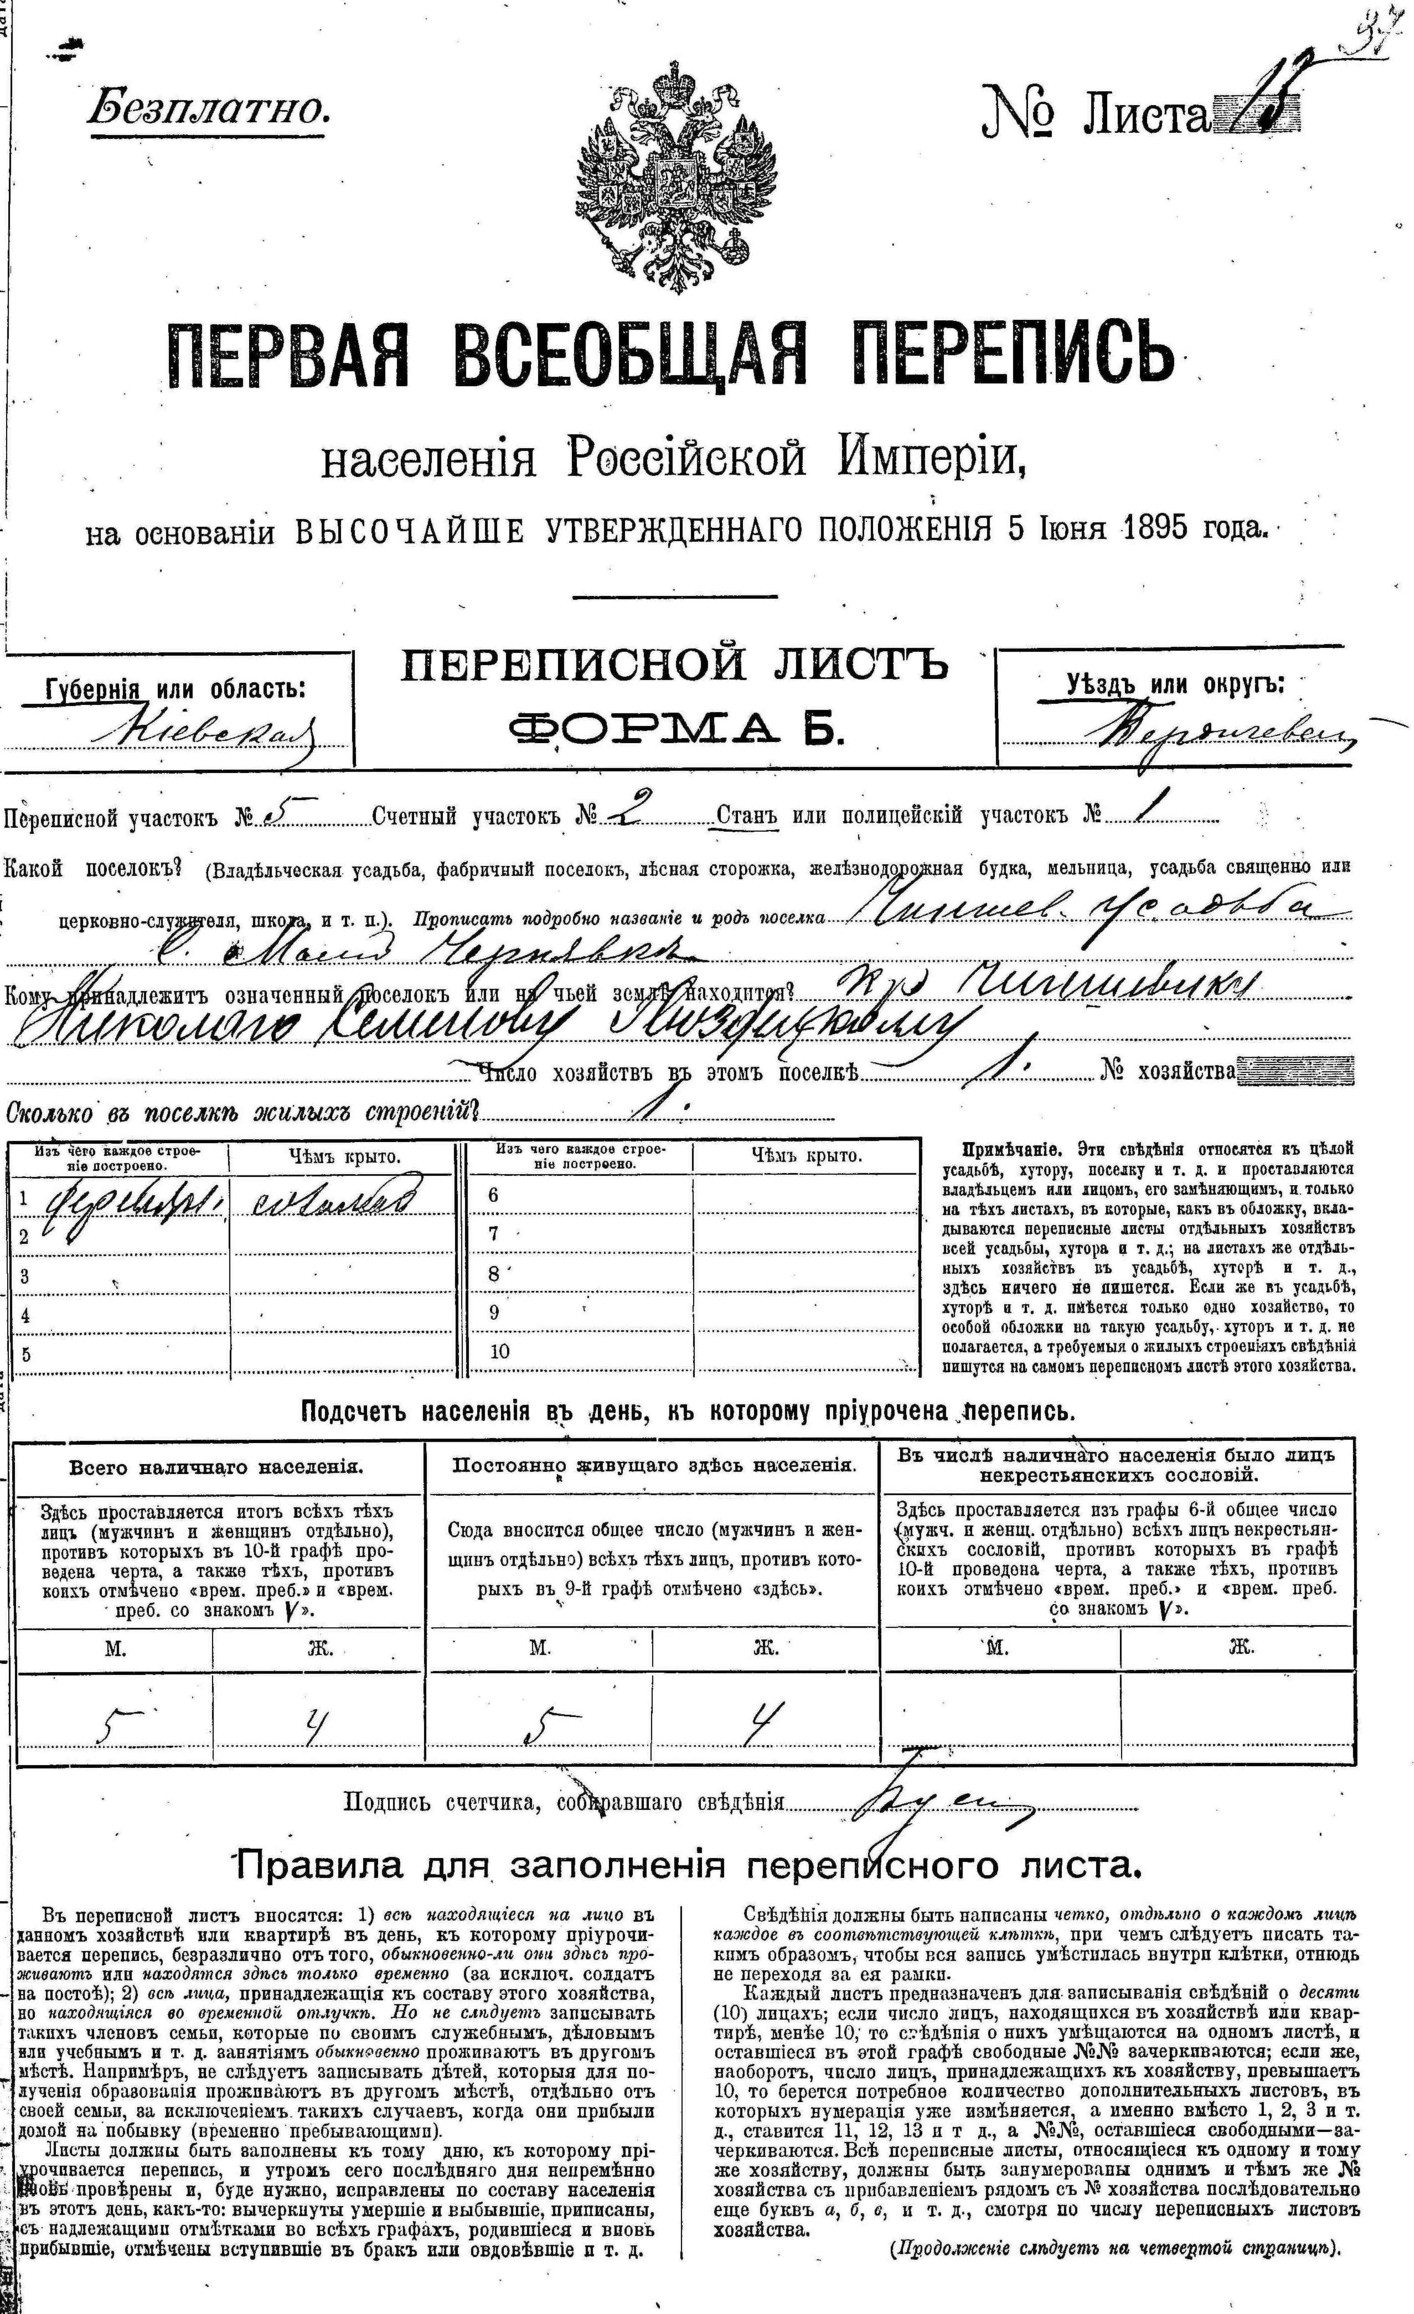 37
Безплатно.
№ Листа 15
ПЕРВАЯ ВСЕОБЩАЯ ПЕРЕПИСЬ
населенія Россійской Имперіи,
на основаніи ВЫСОЧАЙШЕ УТВЕРЖДЕННАГО ПОЛОЖЕНІЯ 5 Іюня 1895 года.
ПЕРЕПИСНОЙ ЛИСТЪ
ФОРМА Б.
Губернія или область:
Кіевская
Уѣздъ или округъ:
Бердичевск
Переписной участокъ № 5 Счетный участокъ № 2 Станъ или полицейскій участокъ № 1
Какой поселокъ? (Владѣльческая усадьба, фабричный поселокъ, лѣсная сторожка, желѣзнодорожная будка, мельница, усадьба священно или
церковно-служителя, школа, и т. п.). Прописать подробно названіе и родъ поселка Чиншев. усадьба
с. Мала Чернявка
Кому принадлежитъ означенный поселокъ или на чьей землѣ находится? кр Чиншевику
Николаю Семенову
Число хозяйствъ въ этомъ поселкѣ 1. № хозяйства
Сколько въ поселкѣ жилыхъ строеній? 1.
Изъ чего каждое строе-
ніе построено.
Чѣмъ крыто.
Изъ чего каждое строе-
ніе построено.
Чѣмъ крыто.
1 деревян. соломою 6
2 7
3 8
4 9
5 10
Примѣчаніе. Эти свѣдѣнія относятся къ цѣлой
усадьбѣ, хутору, поселку и т. д. и проставляются
владѣльцемъ или лицомъ, его замѣняющимъ, и только
на тѣхъ листахъ, въ которые, какъ въ обложку, вкла-
дываются переписные листы отдѣльныхъ хозяйствъ
всей усадьбы, хутора и т. д.; на листахъ же отдѣль-
ныхъ хозяйствъ въ усадьбѣ, хуторѣ и т. д.,
здѣсь ничего не пишется. Если же въ усадьбѣ,
хуторѣ и т. д. имѣется только одно хозяйство, то
особой обложки на такую усадьбу, хуторъ и т. д. не
полагается, а требуемыя о жилыхъ строеніяхъ свѣдѣнія
пишутся на самомъ переписномъ листѣ этого хозяйства.
Подсчетъ населенія въ день, къ которому пріурочена перепись.
Всего наличнаго населенія.
Здѣсь проставляется итогъ всѣхъ тѣхъ
лицъ (мужчинъ и женщинъ отдѣльно),
противъ которыхъ въ 10-й графѣ про-
ведена черта, а также тѣхъ, противъ
коихъ отмѣчено «врем. преб.» и «врем.
преб. со знакомъ V».
Постоянно живущаго здѣсь населенія.
Сюда вносится общее число (мужчинъ и жен-
щинъ отдѣльно) всѣхъ тѣхъ лицъ, противъ кото-
рыхъ въ 9-й графѣ отмѣчено «здѣсь».
Въ числѣ наличнаго населенія было лицъ
некрестьянскихъ сословій.
Здѣсь проставляется изъ графы 6-й общее число
(мужч. и женщ. отдѣльно) всѣхъ лицъ некрестьян-
скихъ сословій, противъ которыхъ въ графѣ
10-й проведена черта, а также тѣхъ, противъ
коихъ отмѣчено «врем. преб.» и «врем. преб.
со знакомъ V».
М. Ж. М. Ж. М. Ж.
5 4 5 4
Подпись счетчика, собиравшаго свѣдѣнія
Правила для заполненія переписного листа.
Въ переписной листъ вносятся: 1) всѣ находящіеся на лицо въ
данномъ хозяйствѣ или квартирѣ въ день, къ которому пріурочи-
вается перепись, безразлично отъ того, обыкновенно-ли они здѣсь про-
живаютъ или находятся здѣсь только временно (за исключ. солдатъ
на постоѣ); 2) всѣ лица, принадлежащія къ составу этого хозяйства,
но находящіяся во временной отлучкѣ. Но не слѣдуетъ записывать
такихъ членовъ семьи, которые по своимъ служебнымъ, дѣловымъ
или учебнымъ и т. д. занятіямъ обыкновенно проживаютъ въ другомъ
мѣстѣ. Напримѣръ, не слѣдуетъ записывать дѣтей, которыя для по-
лученія образованія проживаютъ въ другомъ мѣстѣ, отдѣльно отъ
своей семьи, за исключеніемъ такихъ случаевъ, когда они прибыли
домой на побывку (временно пребывающими).
Листы должны быть заполнены къ тому дню, къ которому прі-
урочивается перепись, и утромъ сего послѣдняго дня непремѣнно
вновь провѣрены и, буде нужно, исправлены по составу населенія
въ этотъ день, какъ-то: вычеркнуты умершіе и выбывшіе, приписаны,
съ надлежащими отмѣтками во всѣхъ графахъ, родившіеся и вновь
прибывшіе, отмѣчены вступившіе въ бракъ или овдовѣвшіе и т. д.
Свѣдѣнія должны быть написаны четко, отдѣльно о каждомъ лицѣ
каждое въ соотвѣтствующей клѣткѣ, при чемъ слѣдуетъ писать та-
кимъ образомъ, чтобы вся запись умѣстилась внутри клѣтки, отнюдь
не переходя за ея рамки.
Каждый листъ предназначенъ для записыванія свѣдѣній о десяти
(10) лицахъ; если число лицъ, находящихся въ хозяйствѣ или квар-
тирѣ, менѣе 10, то свѣдѣнія о нихъ умѣщаются на одномъ листѣ, и
оставшіеся въ этой графѣ свободные №№ зачеркиваются; если же,
наоборотъ, число лицъ, принадлежащихъ къ хозяйству, превышаетъ
10, то берется потребное количество дополнительныхъ листовъ, въ
которыхъ нумерація уже измѣняется, а именно вмѣсто 1, 2, 3 и т.
д., ставится 11, 12, 13 и т д., а №№, оставшіеся свободными—за-
черкиваются. Всѣ переписные листы, относящіеся къ одному и тому
же хозяйству, должны быть занумерованы однимъ и тѣмъ же №
хозяйства съ прибавленіемъ рядомъ съ № хозяйства послѣдовательно
еще буквъ а, б, в, и т. д., смотря по числу переписныхъ листовъ
хозяйства.
(Продолженіе слѣдуетъ на четвертой страницѣ).